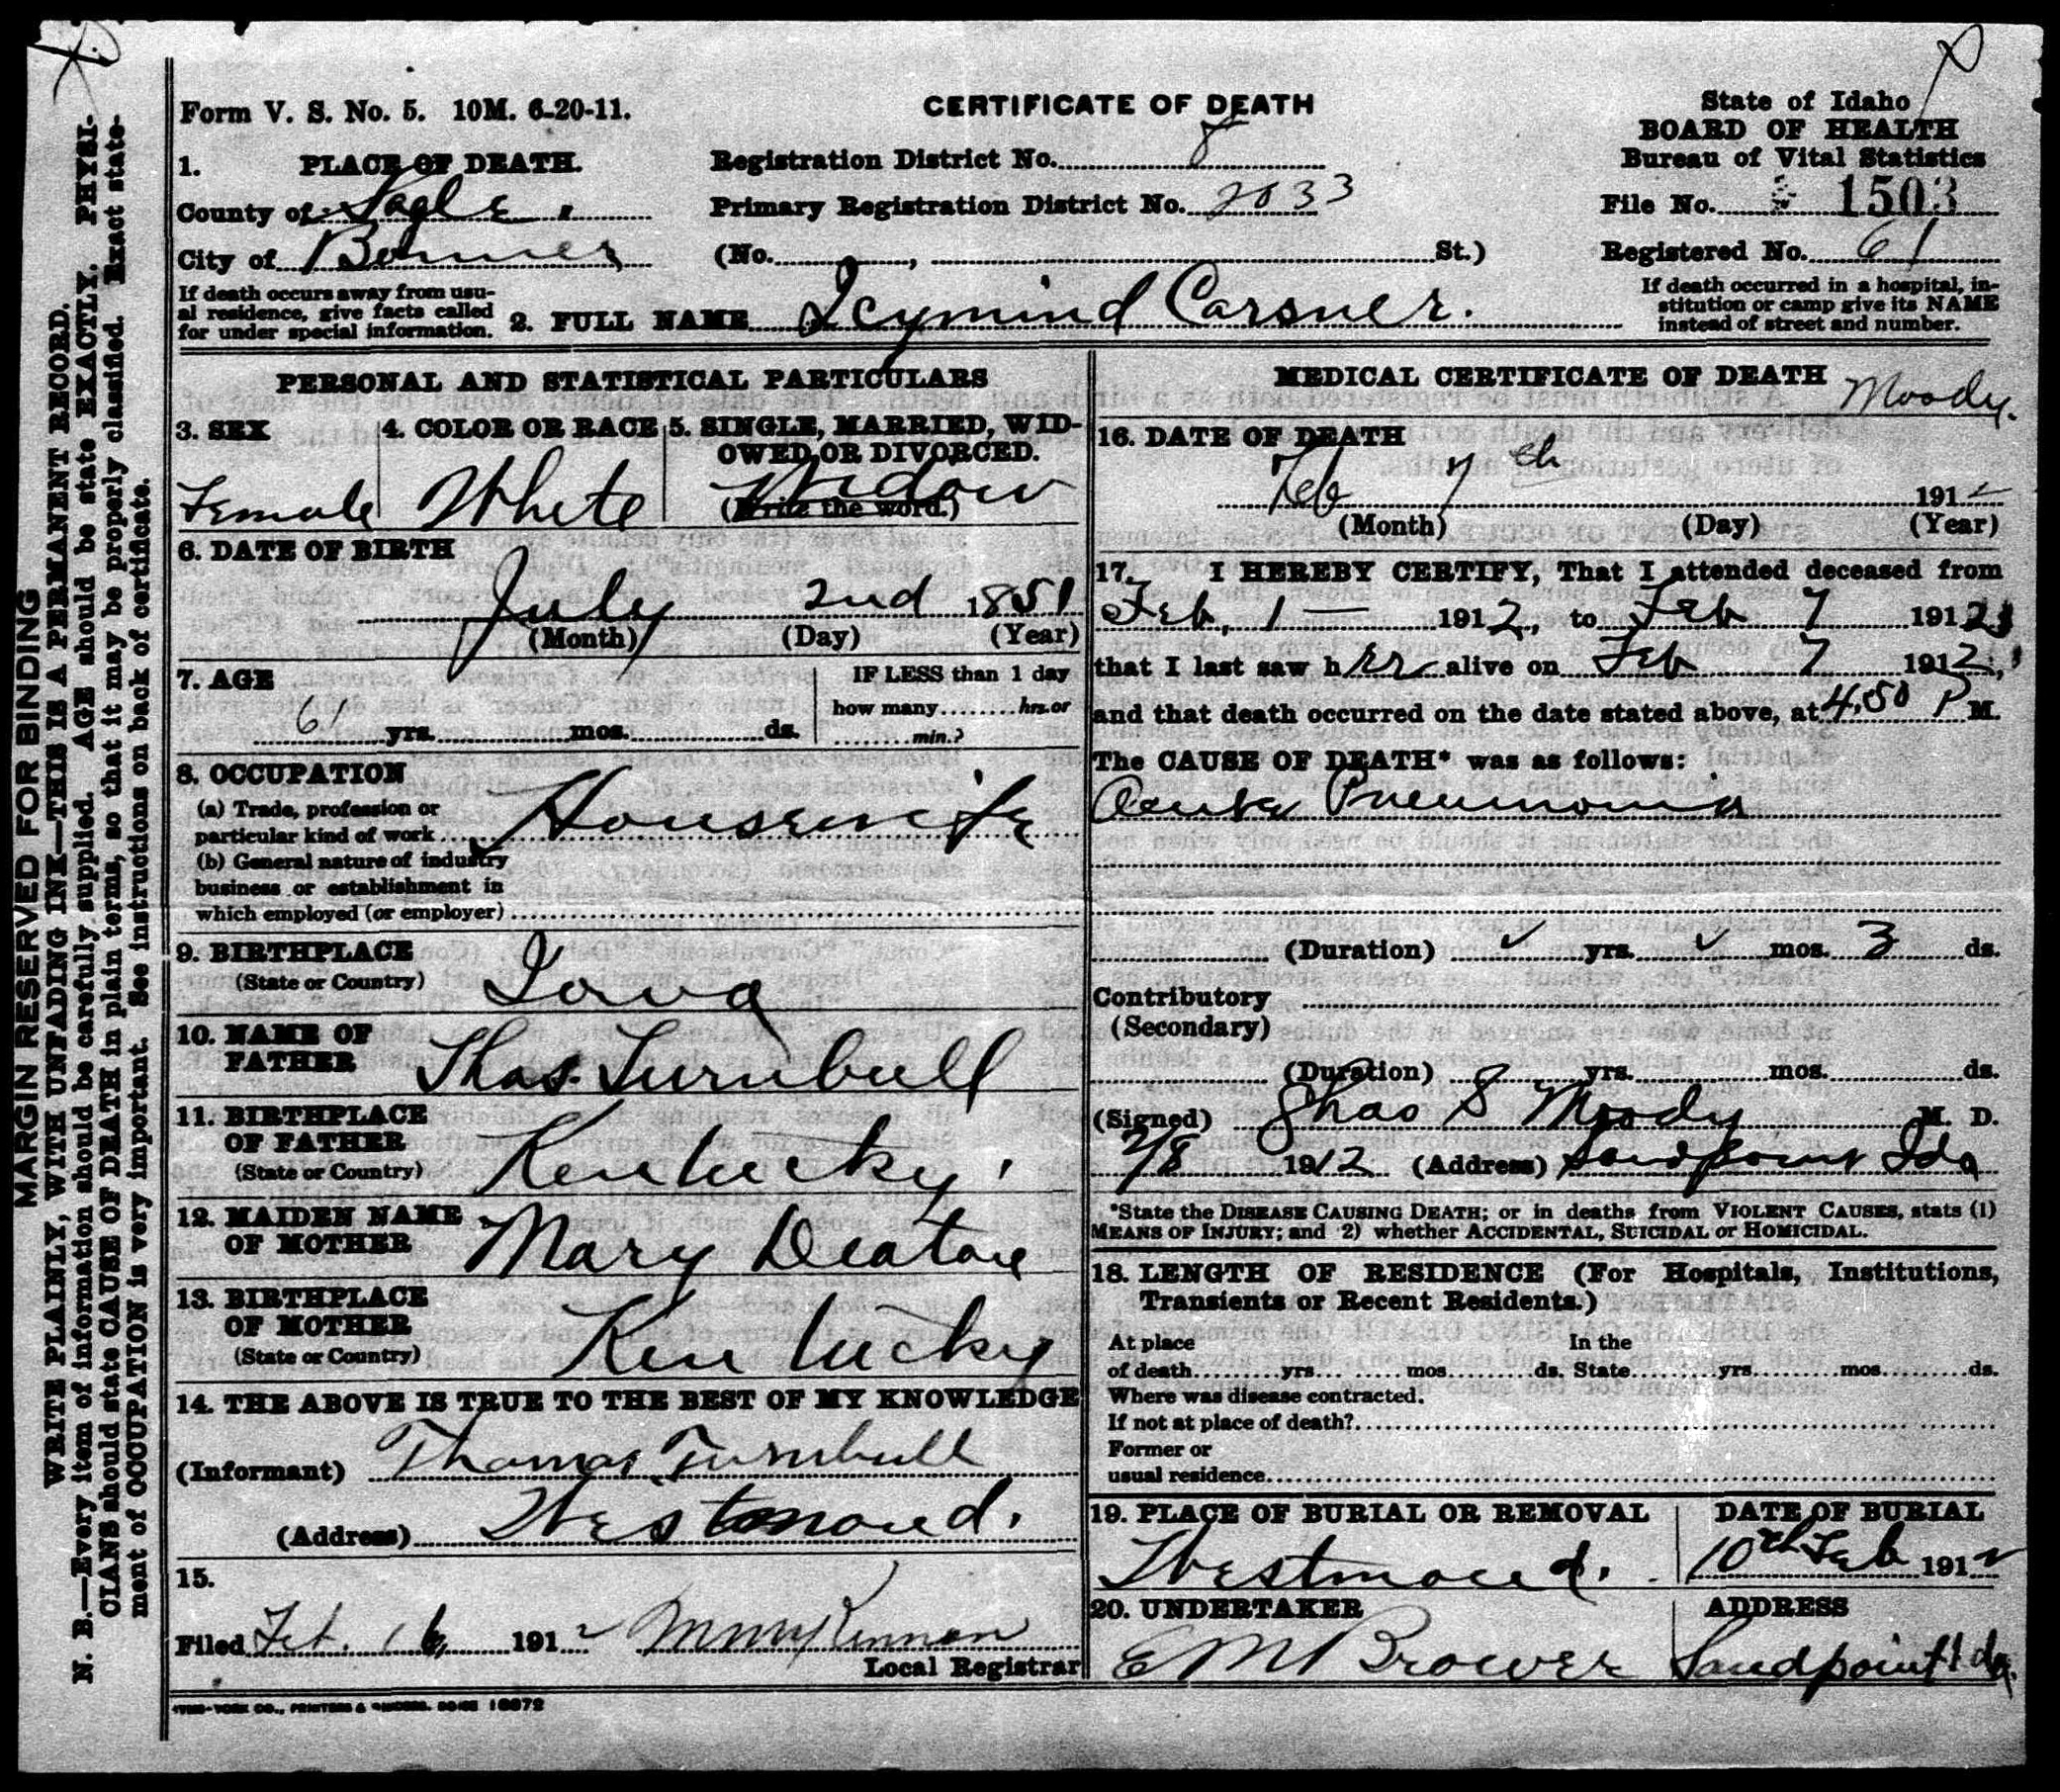 Form V. S. No. 5. 10M. 6-20-11.
CERTIFICATE OF DEATH
State of Idaho
BOARD OF HEALTH
Bureau of Vital Statistics
1. PLACE OF DEATH.
Registration District No. 8
County of Sagle.
Primary Registration District No. 2033
File No. 1503
City of Bonner
(No. , St.)
Registered No. 61
If death occurs away from usu-
al residence, give facts called
for under special information.
2. FULL NAME Icymind Carsner.
If death occurred in a hospital, in-
stitution or camp give its NAME
instead of street and number.
PERSONAL AND STATISTICAL PARTICULARS
3. SEX
Female
4. COLOR OR RACE
White
5. SINGLE, MARRIED, WID-
OWED, OR DIVORCED.
Widow
(Write the word.)
6. DATE OF BIRTH
July 2nd 1851
(Month) (Day) (Year)
7. AGE
61 yrs. mos. ds.
IF LESS than 1 day
how many hrs. or
min.?
8. OCCUPATION
(a) Trade, profession or
particular kind of work Housewife
(b) General nature of industry
business or establishment in
which employed (or employer)
9. BIRTHPLACE
(State or Country) Iowa
10. NAME OF
FATHER Thos. Turnbull
11. BIRTHPLACE
OF FATHER
(State or Country) Kentucky.
12. MAIDEN NAME
OF MOTHER Mary Deaton
13. BIRTHPLACE
OF MOTHER
(State or Country) Kentucky
14. THE ABOVE IS TRUE TO THE BEST OF MY KNOWLEDGE
(Informant) Thomas Turnbull
(Address) Westmond.
15.
Filed Feb. 16 1912
Local Registrar
MEDICAL CERTIFICATE OF DEATH Moody.
16. DATE OF DEATH
Feb 7th 1912
(Month) (Day) (Year)
17. I HEREBY CERTIFY, That I attended deceased from
Feb, 1 — 1912, to Feb 7 1912,
that I last saw her alive on Feb 7 1912,
and that death occurred on the date stated above, at 4.50 P M.
The CAUSE OF DEATH* was as follows:
Acute Pneumonia
(Duration) ✓ yrs. ✓ mos. 3 ds.
Contributory
(Secondary)
(Duration) yrs. mos. ds.
(Signed) Chas S Moody M. D.
2/8 1912 (Address) Sandpoint Ida
*State the DISEASE CAUSING DEATH; or in deaths from VIOLENT CAUSES, stats (1)
MEANS OF INJURY; and 2) whether ACCIDENTAL, SUICIDAL or HOMICIDAL.
18. LENGTH OF RESIDENCE (For Hospitals, Institutions,
Transients or Recent Residents.)
At place In the
of death yrs. mos. ds. State yrs. mos. ds.
Where was disease contracted.
If not at place of death?
Former or
usual residence
19. PLACE OF BURIAL OR REMOVAL
Westmond.
DATE OF BURIAL
10th Feb 1912
20. UNDERTAKER
E M Brower
ADDRESS
Sandpoint Ida.
MARGIN RESERVED FOR BINDING
WRITE PLAINLY, WITH UNFADING INK—THIS IS A PERMANENT RECORD.
N. B.—Every item of information should be carefully supplied. AGE should be state EXACTLY. PHYSI-
CIANS should state CAUSE OF DEATH in plain terms, so that it may be properly classified. Exact state-
ment of OCCUPATION is very important. See instructions on back of certificate.